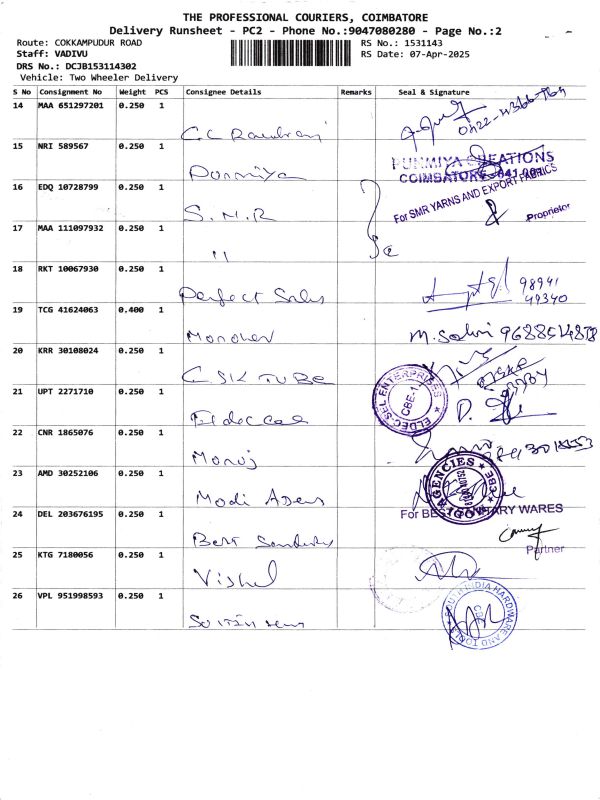 THE PROFESSIONAL COURIERS, COIMBATORE
Delivery Runsheet - PC2 - Phone No.:9047080280 - Page No.:2
Route: COKKAMPUDUR ROAD
RS No.: 1531143
Staff: VADIVU
RS Date: 07-Apr-2025
DRS No.: DCJB153114302
Vehicle: Two Wheeler Delivery
S No Consignment No Weight PCS Consignee Details Remarks Seal & Signature
14 MAA 651297201 0.250 1
0422-4366
15 NRI 589567 0.250 1
Punmiya
PUNMIYA CREATIONS
COIMBATORE - 641 001
16 EDQ 10728799 0.250 1
S.M.R
For SMR YARNS AND EXPORT FABRICS
Proprietor
17 MAA 111097932 0.250 1
"
18 RKT 10067930 0.250 1
Perfect Sales
98941
49340
19 TCG 41624063 0.400 1
Manohar
M. Selvi 9688514878
20 KRR 30108024 0.250 1
C.SK TUBE
21 UPT 2271710 0.250 1
Eldeccel
ELDEC-SEL ENTERPRISES
CBE-1
22 CNR 1865076 0.250 1
Manoj
23 AMD 30252106 0.250 1
Modi Agens
MODI AGENCIES
CBE
24 DEL 203676195 0.250 1
Best Sanitary
For BEST SANITARY WARES
Partner
25 KTG 7180056 0.250 1
Vishal
26 VPL 951998593 0.250 1
SOUTH INDIA HARDWARE AND TOOLS
CBE